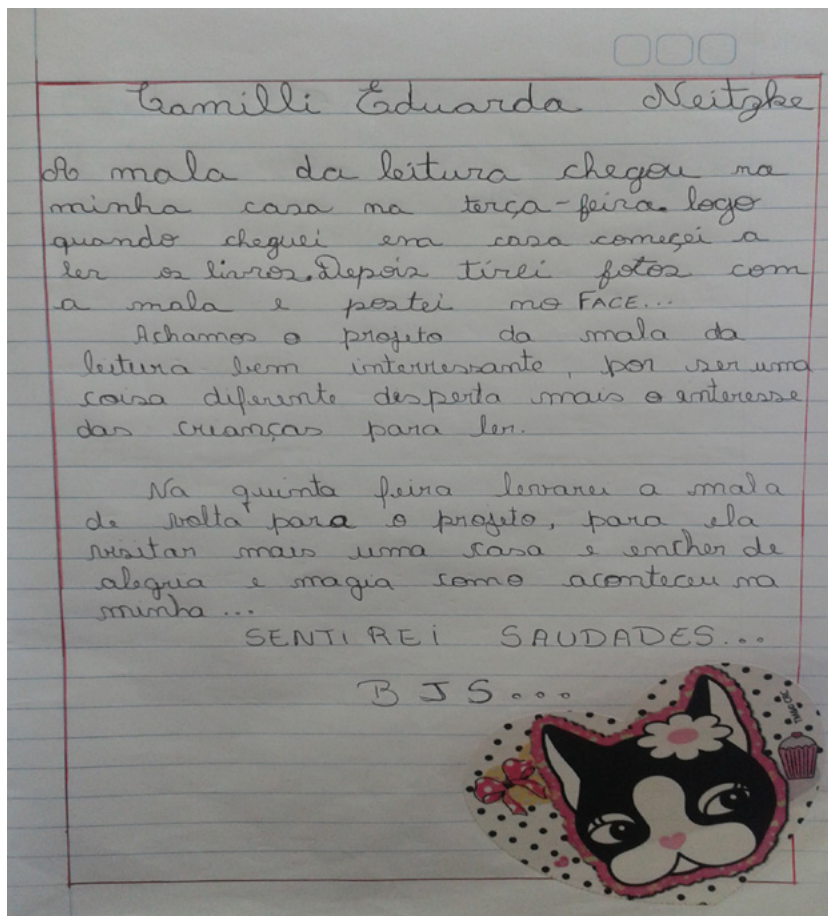 Camilli Eduarda Neitzke
A mala da leitura chegou na
minha casa na terça-feira. logo
quando cheguei em casa começei a
ler os livros. Depois tirei fotos com
a mala e postei no FACE...
Achamos o projeto da mala da
leitura bem interressante, por ser uma
coisa diferente desperta mais o interesse
das crianças para ler.
Na quinta feira levarei a mala
de volta para o projeto, para ela
visitar mais uma casa e encher de
alegria e magia como aconteceu na
minha...
SENTIREI SAUDADES...
BJS...